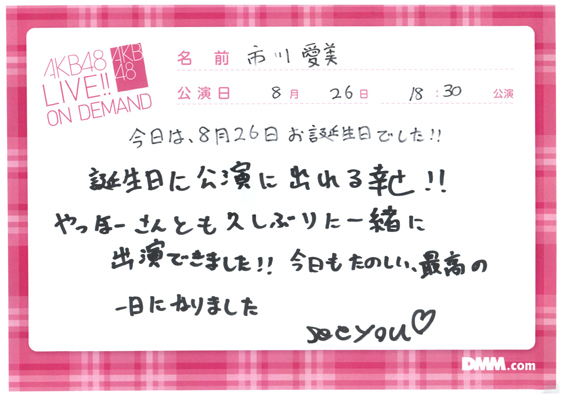 AKB48
LIVE!!
ON DEMAND
AKB
48
名 前 市川愛美
公演日 8月 26日 18:30 公演
今日は、8月26日お誕生日でした!!
誕生日に公演に出れる幸せ!!
やっほーさんとも久しぶりに一緒に
出演できました!! 今日もたのしい、最高の
一日になりました
see you♡
DMM.com